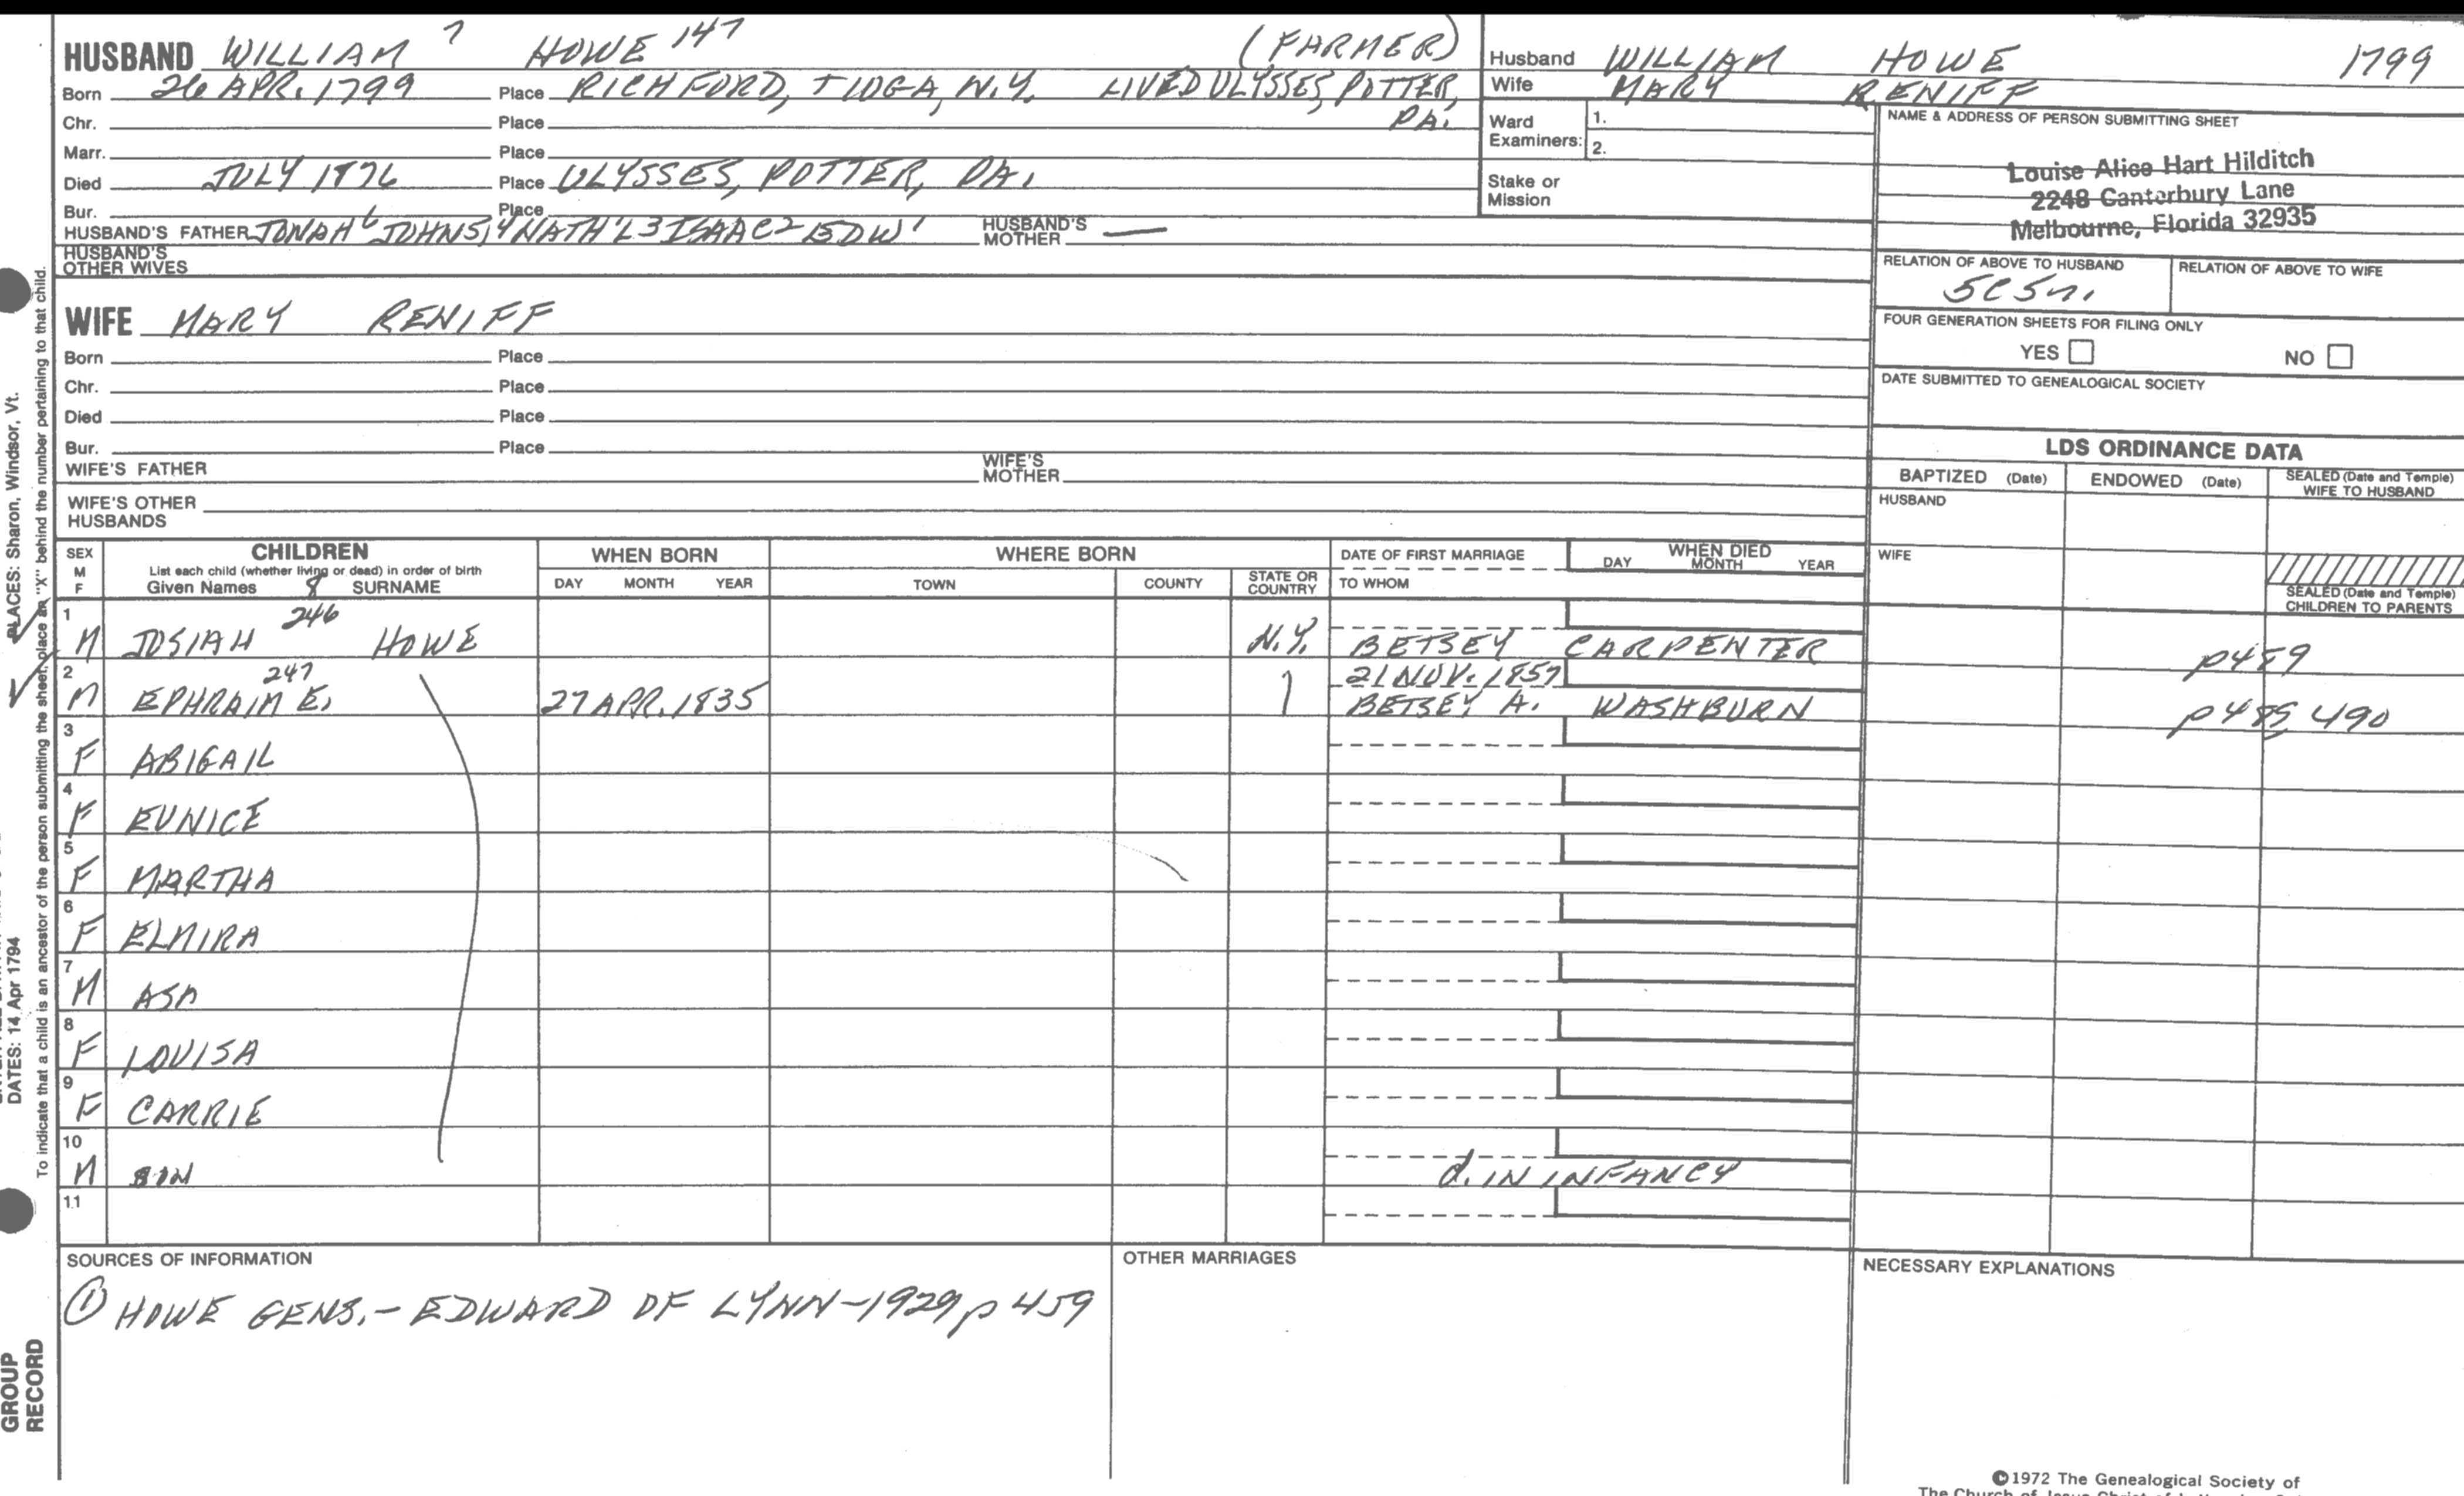 HUSBAND WILLIAM 7 HOWE 147 (FARMER)
Born 26 APR. 1799 Place RICHFORD, TIOGA, N.Y. LIVED ULYSSES, POTTER, PA.
Chr. Place
Marr. Place
Died JULY 1876 Place ULYSSES, POTTER, PA.
Bur. Place
HUSBAND'S FATHER JONAH 6 JOHN 5, 4 NATH'L 3 ISAAC 2 EDW 1 HUSBAND'S MOTHER —
HUSBAND'S OTHER WIVES
Husband WILLIAM HOWE 1799
Wife MARY RENIFF
Ward Examiners: 1.
2.
Stake or Mission
NAME & ADDRESS OF PERSON SUBMITTING SHEET
Louise Alice Hart Hilditch
2248 Canterbury Lane
Melbourne, Florida 32935
RELATION OF ABOVE TO HUSBAND RELATION OF ABOVE TO WIFE
FOUR GENERATION SHEETS FOR FILING ONLY
YES NO
DATE SUBMITTED TO GENEALOGICAL SOCIETY
WIFE MARY RENIFF
Born Place
Chr. Place
Died Place
Bur. Place
WIFE'S FATHER WIFE'S MOTHER
WIFE'S OTHER HUSBANDS
LDS ORDINANCE DATA
BAPTIZED (Date) ENDOWED (Date) SEALED (Date and Temple) WIFE TO HUSBAND
HUSBAND
WIFE
SEALED (Date and Temple) CHILDREN TO PARENTS
SEX M F
CHILDREN
List each child (whether living or dead) in order of birth
Given Names 8 SURNAME
WHEN BORN
DAY MONTH YEAR
WHERE BORN
TOWN COUNTY STATE OR COUNTRY
DATE OF FIRST MARRIAGE
TO WHOM
WHEN DIED
DAY MONTH YEAR
1 M JOSIAH 246 HOWE N.Y. BETSEY CARPENTER p489
2 M EPHRAIM E. 247 27 APR. 1835 21 NOV. 1857
BETSEY A. WASHBURN 490
3 F ABIGAIL
4 F EUNICE
5 F MARTHA
6 F ELMIRA
7 M ASA
8 F LOUISA
9 F CARRIE
10 M SON d. IN INFANCY
11
SOURCES OF INFORMATION
① HOWE GENS. - EDWARD OF LYNN - 1929 p 459
OTHER MARRIAGES
NECESSARY EXPLANATIONS
©1972 The Genealogical Society of
PLACES: Sharon, Windsor, Vt.
DATES: 14 Apr 1794
To indicate that a child is an ancestor of the person submitting the sheet, place an "X" behind the number pertaining to that child.
GROUP
RECORD